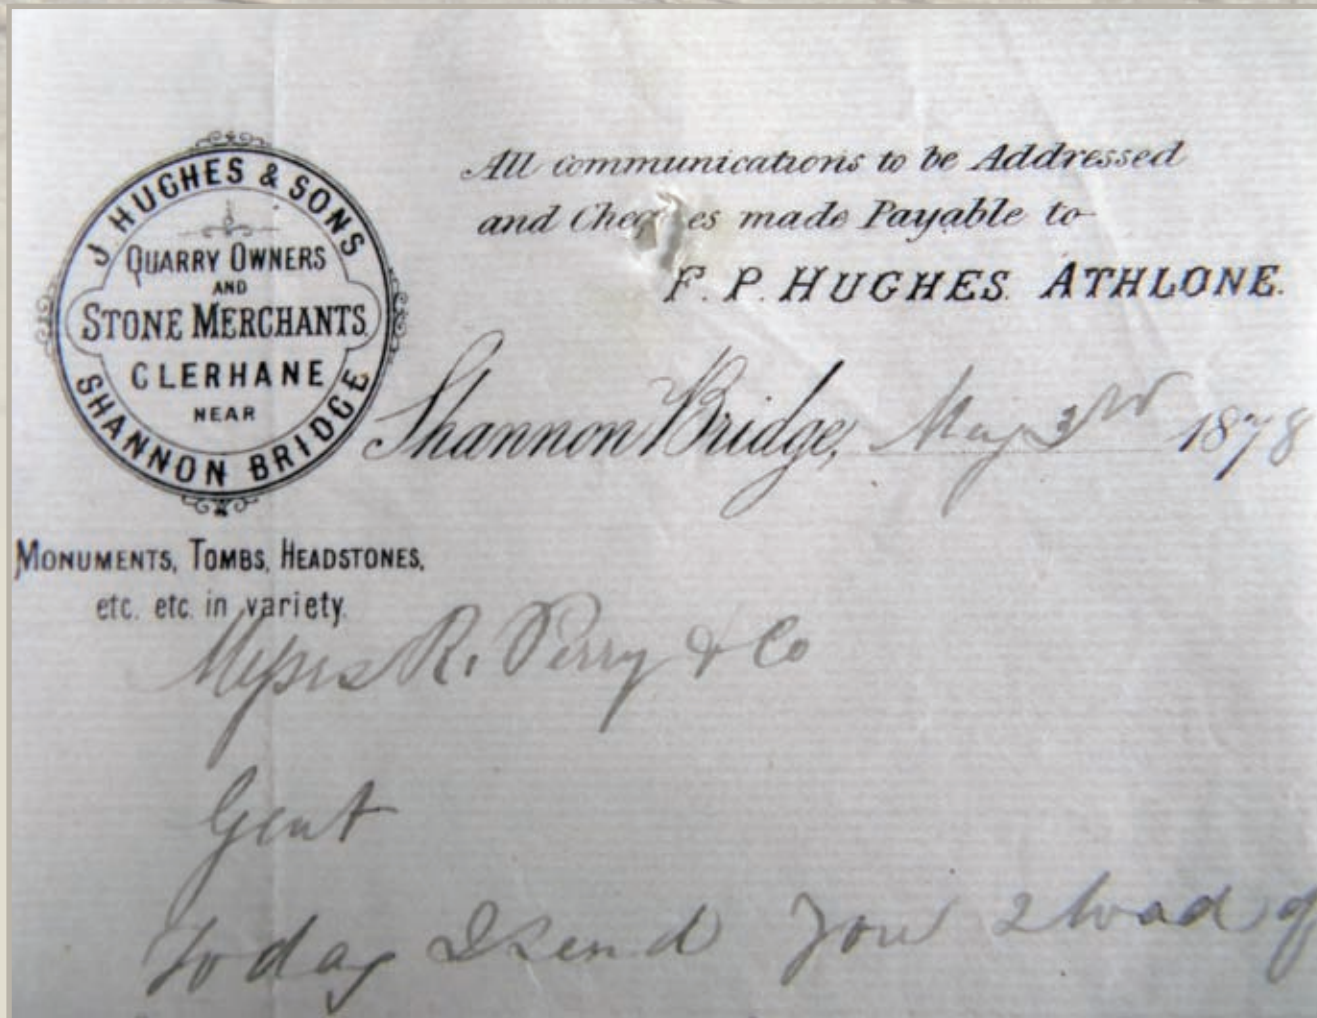 J HUGHES & SONS
QUARRY OWNERS
AND
STONE MERCHANTS
CLERHANE
NEAR
SHANNON BRIDGE
MONUMENTS, TOMBS, HEADSTONES,
etc. etc. in variety.
All communications to be Addressed
and Cheques made Payable to
F. P. HUGHES. ATHLONE.
Shannon Bridge, May 3rd 1878
Messrs R. Perry & Co
Gent
Today I send you 2 load of